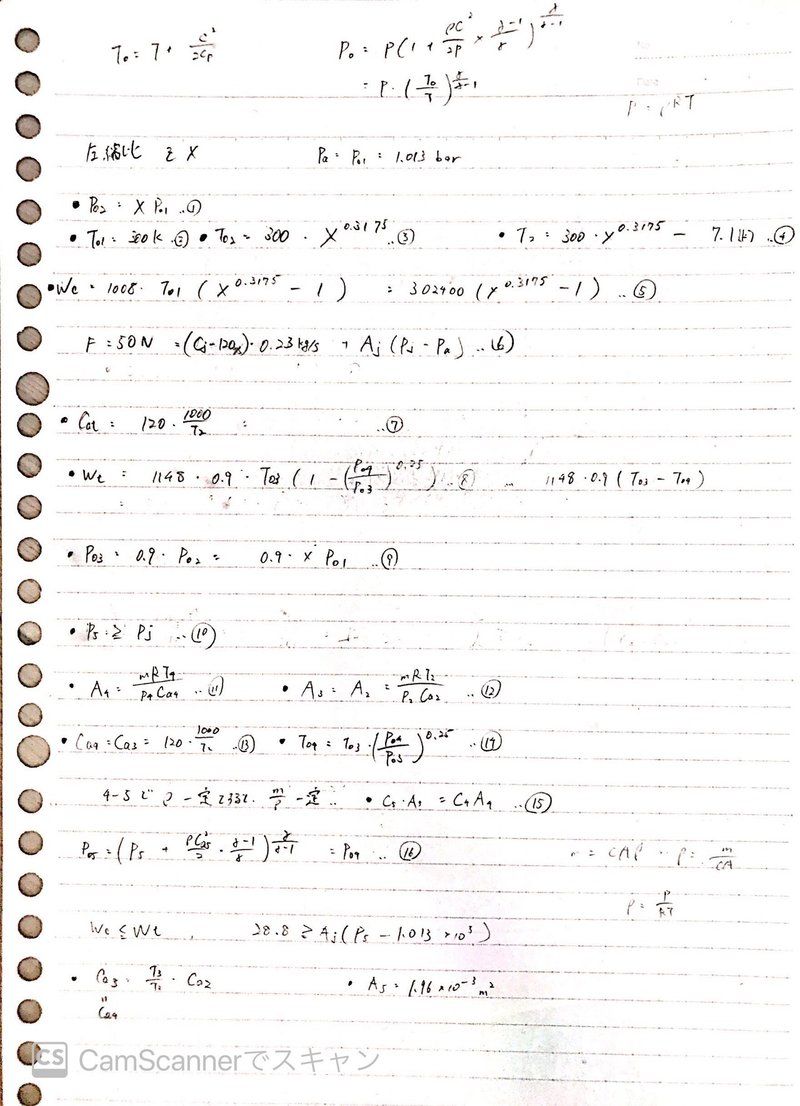 T₀ = T + C²/2Cp
P₀ = P(1 + ρC²/2P × γ-1/γ)^γ/γ-1
= P・(T₀/T)^γ/γ-1
P = ρRT
圧縮比 を X Pa = P₀₁ = 1.013 bar
• P₀₂ = X P₀₁ ..①
• T₀₁ = 300K ..② • T₀₂ = 300 ・ X^0.3175 ..③ • T₂ = 300・X^0.3175 - 7.1(K) ..④
• Wc = 1008・T₀₁ (X^0.3175 - 1) = 302400 (X^0.3175 - 1) ..⑤
F = 50N = (Cj-120)・0.23 kg/s + Aj (Pj - Pa) ..⑥
• Ca = 120・1000/T₂ = ..⑦
• Wt = 1148・0.9・T₀₃ (1 - (P₀₄/P₀₃)^0.25) ..⑧ 1148・0.9 (T₀₃ - T₀₄)
• P₀₃ = 0.9・P₀₂ = 0.9・X P₀₁ ..⑨
• P₅ ≧ Pj ..⑩
• A₄ = mRT₄/P₄Ca₄ ..⑪ • A₃ = A₂ = mRT₂/P₂Ca₂ ..⑫
• Ca₄ = Ca₃ = 120・1000/T₂ ..⑬ • T₀₄ = T₀₃・(P₀₄/P₀₃)^0.25 ..⑭
4-5で ρ一定 m/ρ 一定.. • C₅・A₅ = C₄A₄ ..⑮
P₀₅ = (P₅ + ρC²/2・γ-1/γ)^γ/γ-1 = P₀₄ ..⑯
= CAρ ρ = m/CA
ρ = P/RT
Wc ≦ Wt , 28.8 ≧ Aj(P₅ - 1.013 × 10⁵)
• Ca₃ = T₃/T₂・Ca₂ • A₅ = 1.96×10⁻³ m²
"
Ca₄
CS CamScannerでスキャン